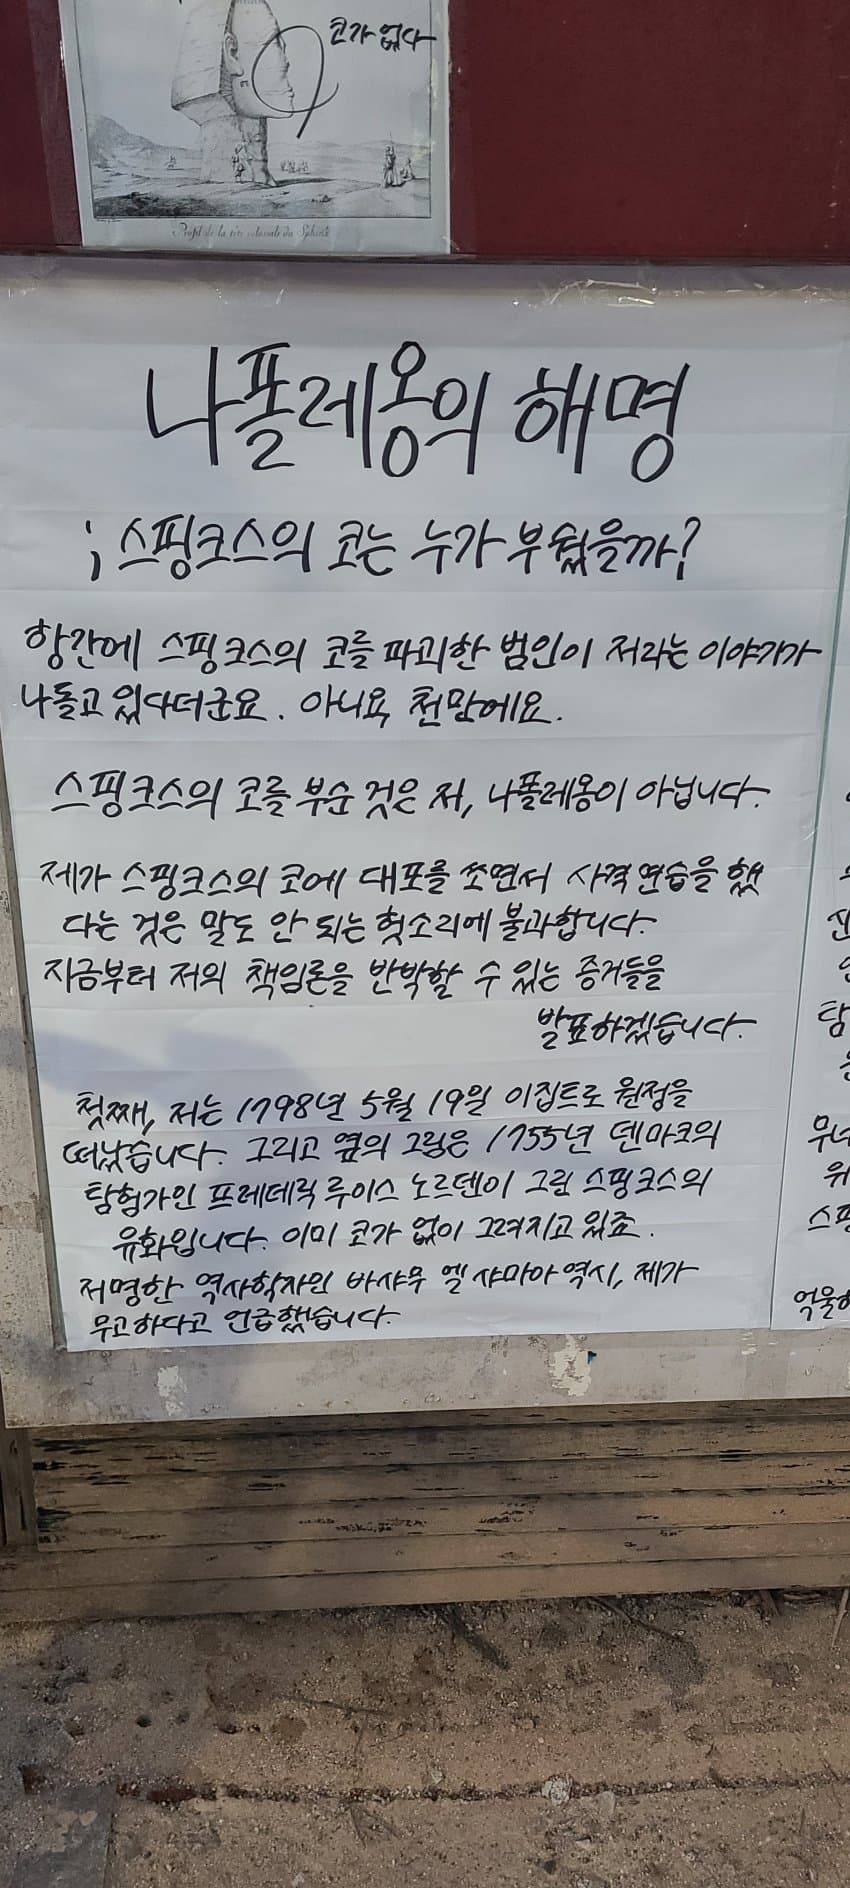 코가 없다
Profil de la tête colossale du Sphinx
나폴레옹의 해명
; 스핑크스의 코는 누가 부쉈을까?
항간에 스핑크스의 코를 파괴한 범인이 저라는 이야기가
나돌고 있다더군요. 아니요, 천만에요.
스핑크스의 코를 부순 것은 저, 나폴레옹이 아닙니다.
제가 스핑크스의 코에 대포를 쏘면서 사격연습을 했
다는 것은 말도 안 되는 헛소리에 불과합니다.
지금부터 저의 책임론을 반박할 수 있는 증거들을
발표하겠습니다.
첫째, 저는 1798년 5월 19일 이집트로 원정을
떠났습니다. 그리고 옆의 그림은 1755년 덴마크의
탐험가인 프레데릭 루이스 노르덴이 그린 스핑크스의
유화입니다. 이미 코가 없이 그려지고 있죠.
저명한 역사학자인 바샤무 엘 샤마아 역시, 제가
무고하다고 언급했습니다.
탐
무너
위
스핑
억울하